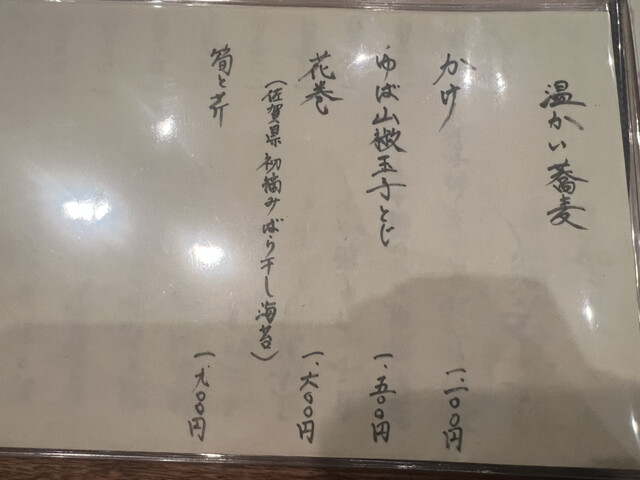 温かい蕎麦
かけ 一、一〇〇円
ゆば山椒玉子とじ 一、五〇〇円
花巻 一、六〇〇円
(佐賀県 初摘みばら干し海苔)
筍と芹 一、九〇〇円